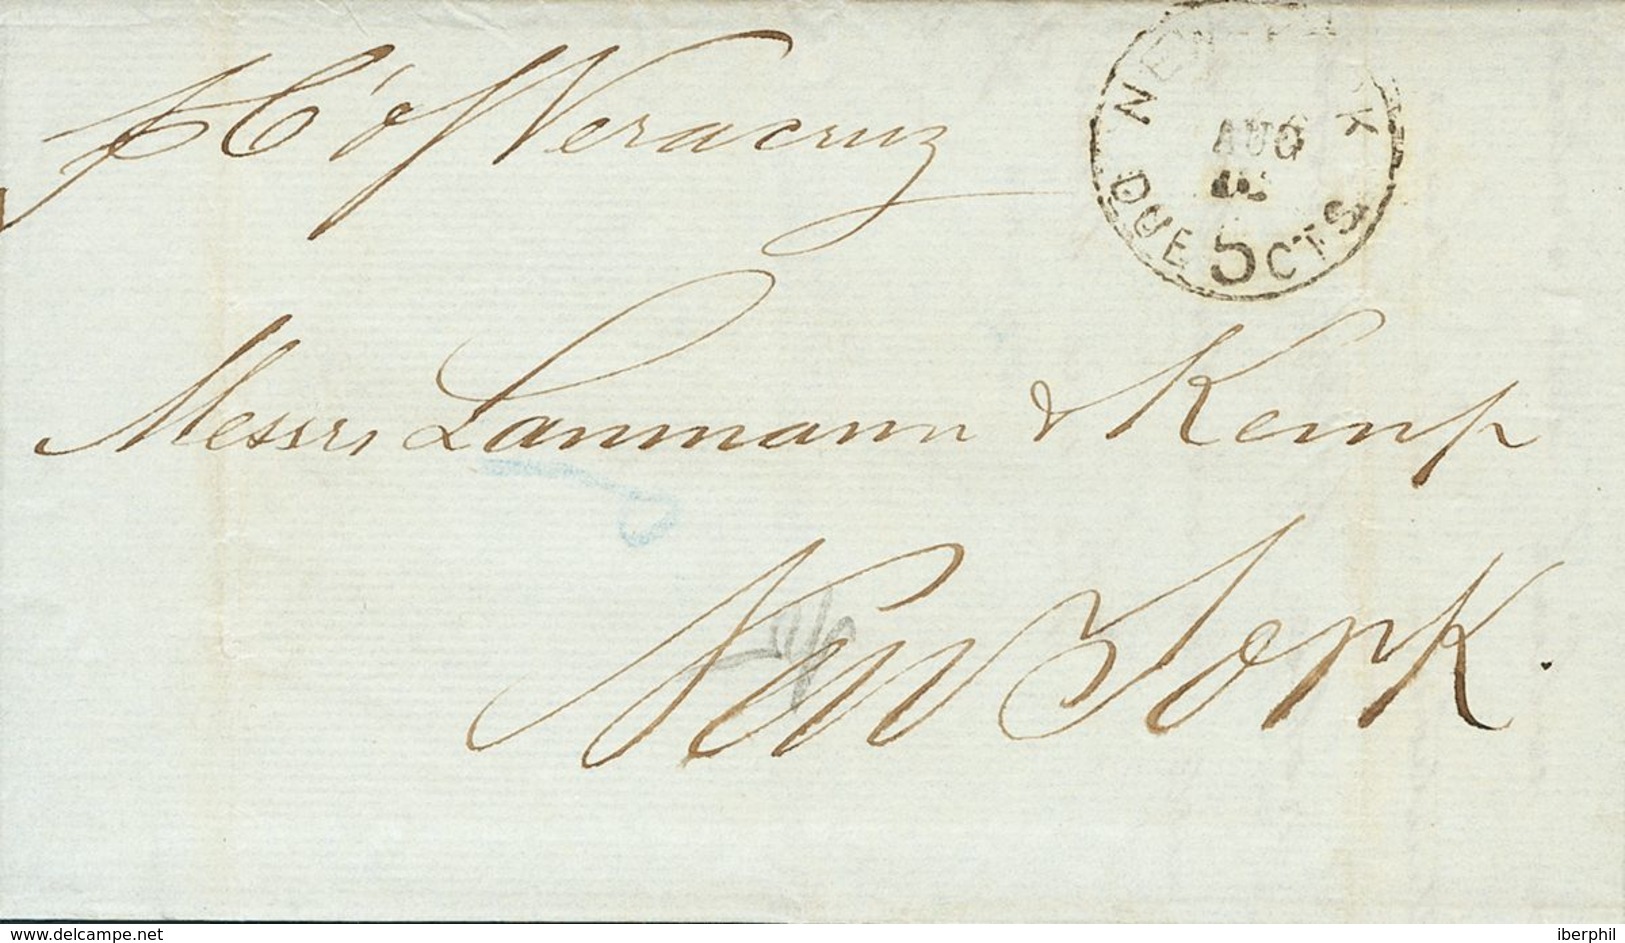 C. of Veracruz
NEW YORK
AUG
DUE 5 CTS
Messrs Lanmann & Kemp
New York.
www.delcampe.net
iberphil